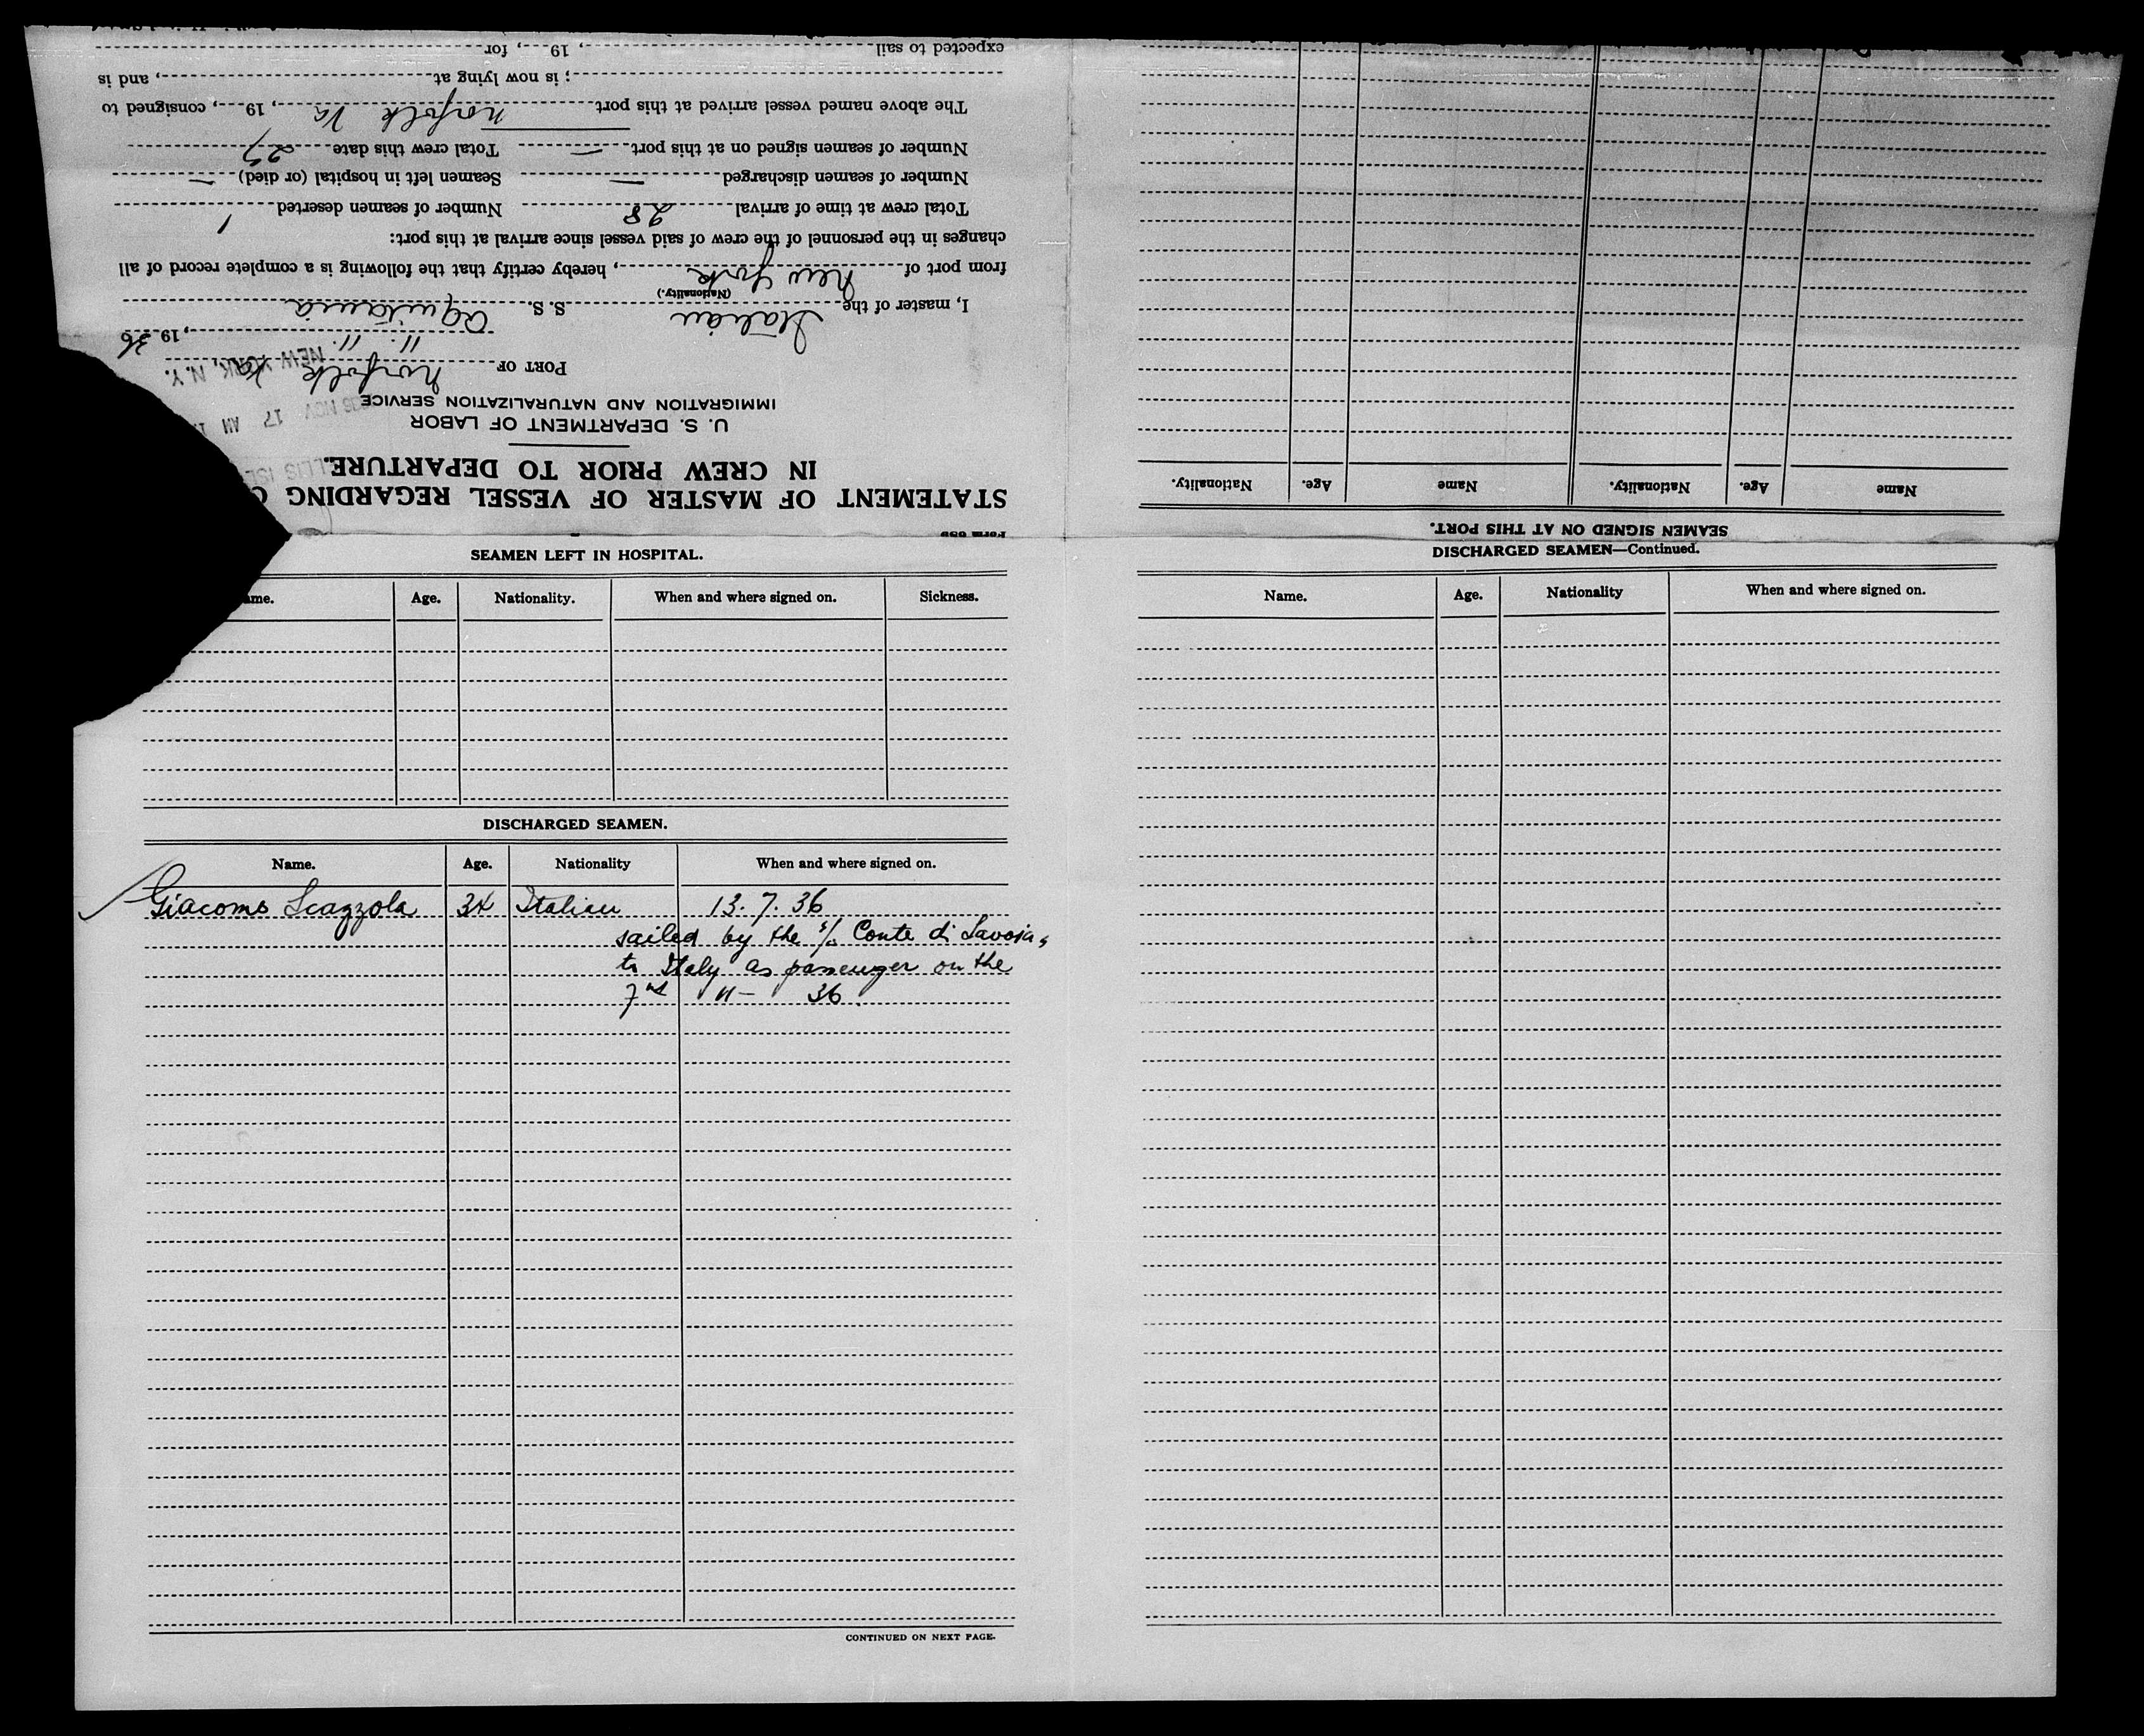 Form 689
STATEMENT OF MASTER OF VESSEL REGARDING
IN CREW PRIOR TO DEPARTURE.
U. S. DEPARTMENT OF LABOR
IMMIGRATION AND NATURALIZATION SERVICE
NOV 17 AM
NEW YORK, N.Y.
PORT OF Norfolk Va
11. 11. , 1936
I, master of the Italian S. S. Aquitania
(Nationality.)
from port of New York, hereby certify that the following is a complete record of all
changes in the personnel of the crew of said vessel since arrival at this port:
Total crew at time of arrival 28 Number of seamen deserted 1
Number of seamen discharged — Seamen left in hospital (or died) —
Number of seamen signed on at this port — Total crew this date 27
The above named vessel arrived at this port Norfolk Va, 19 , consigned to
; is now lying at , and is
expected to sail , 19 , for
SEAMEN SIGNED ON AT THIS PORT.
Name Age. Nationality. Name Age. Nationality.
SEAMEN LEFT IN HOSPITAL.
ame. Age. Nationality. When and where signed on. Sickness.
DISCHARGED SEAMEN.
Name. Age. Nationality When and where signed on.
Giacomo Scazzola Italian 13. 7. 36
sailed by the s/s Conte di Savoia,
to Italy as passenger on the
7 11 - 36.
CONTINUED ON NEXT PAGE.
DISCHARGED SEAMEN—Continued.
Name. Age. Nationality When and where signed on.